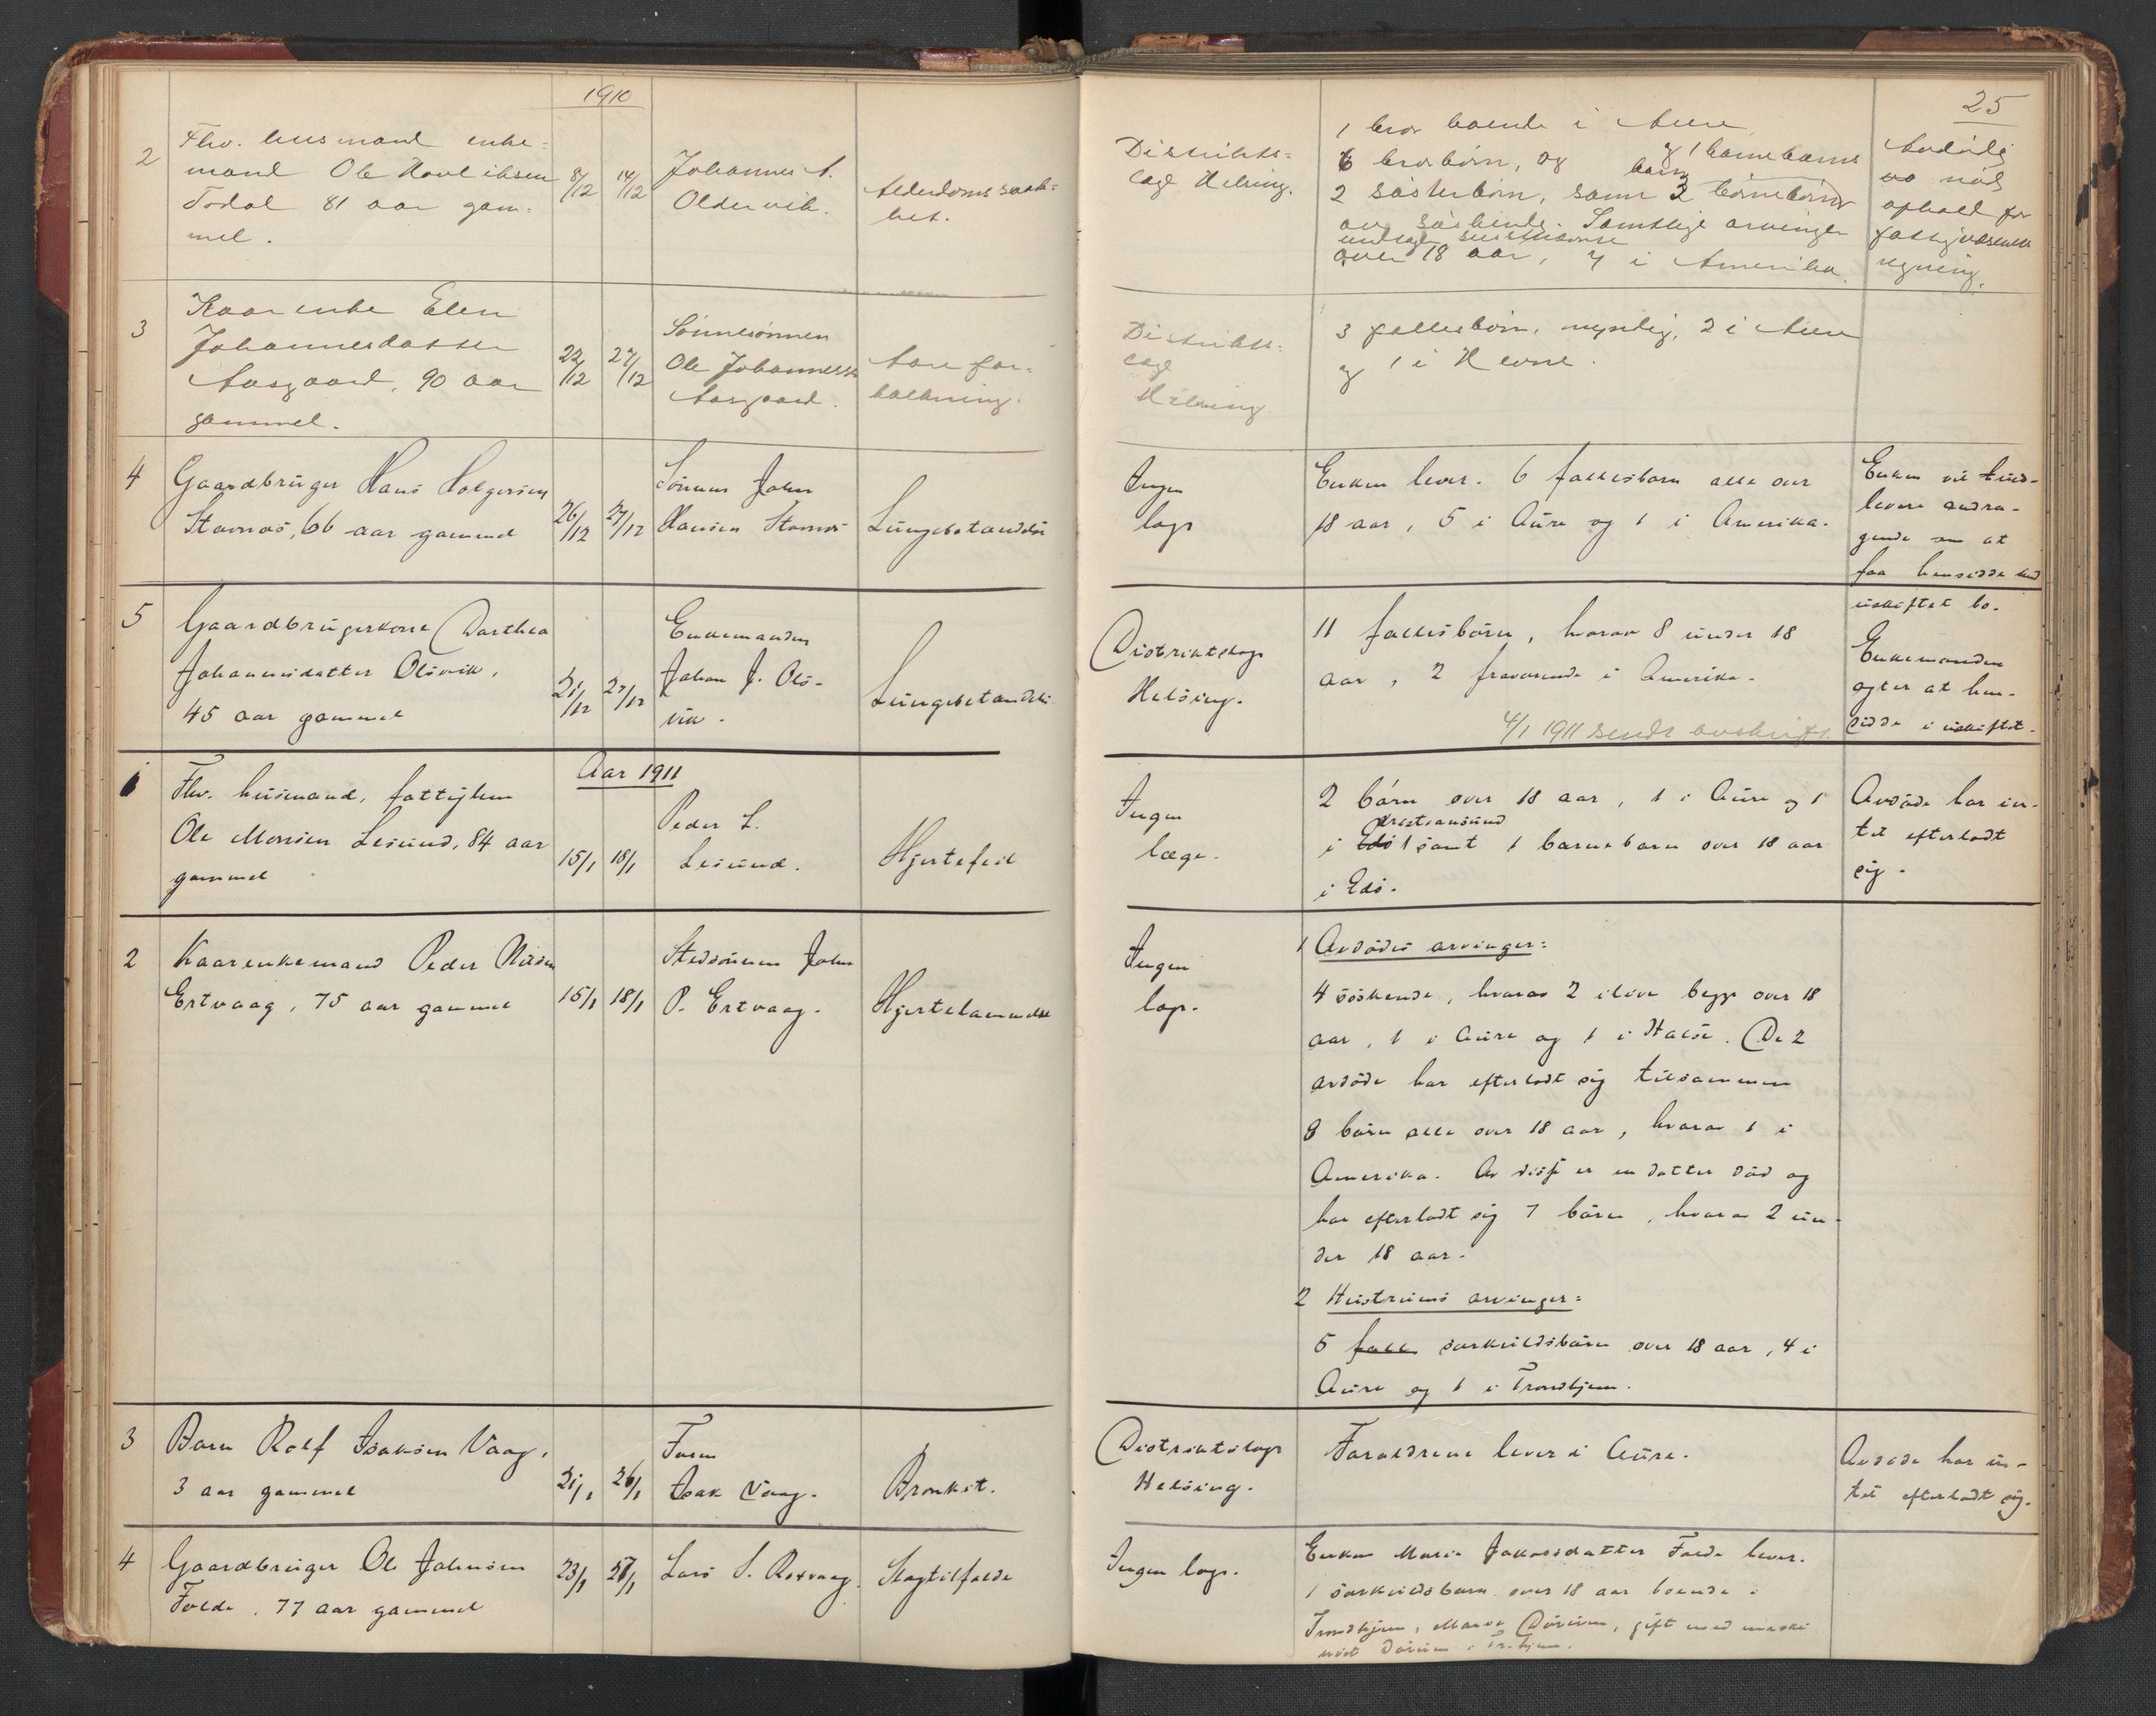 1910
25
2
Fhv. husmand enke=
mand Ole
Todal 81 aar gam=
mel.
8/12
14/12
Johannes A.
Oldervik.
Alderdomssvak-
het.
Distrikts=
læge Helsing.
1 bror boende i Aure
6 brorbörn, og
2 sösterbörn, samt 3
av söskende. Samtlige arvinger
undtagen
over 18 aar, 4 i Amerika.
Avdöde
var
ophold for
fattigvæsenets
regning.
3
Kaarenke Elen
Johannesdatter
Aasgaard, 90 aar
gammel.
22/12
27/12
Sönnesönnen
Ole Johannessen
Aasgaard.
Aare for=
kalkning.
Distrikts=
læge
Helsing
3 fællesbörn, myndig, 2 i Aure
og 1 i Hevne.
4
Gaardbruger Hans Holgersen
Stavnæs, 66 aar gammel
26/12
27/12
Sönnen John
Hansen Stavnæs
Lungebetændelse
Ingen
læge
Enken lever. 6 fællesbarn alle over
18 aar, 5 i Aure og 1 i Amerika.
Enken vil ind-
levere andra-
gende om at
faa hensidde i
uskiftet bo.
5
Gaardbrugerkone Dorthea
Johannesdatter Olsvik,
45 aar gammel
21/12
27/12
Enkemanden
Johan J. Ols-
vik.
Lungebetændelse
Distriktslæge
Helsing.
11 fællesbörn, hvorav 8 under 18
aar, 2 fraværende i Amerika.
4/1 1911 sendt avskrift.
Enkemanden
agter at hen-
sidde i uskiftet.
Aar 1911
1
Fhv. husmand, fattiglem
Ole Monsen Lesund, 84 aar
gammel
15/1
18/1
Peder L.
Lesund.
Hjertefeil
Ingen
læge.
2 börn over 18 aar, 1 i Aure og 1
Kristiansund
i Edö samt 1 barnebarn over 18 aar
i Edö.
Avdöde har in-
tet efterladt
sig.
2
Kaarenkemand Peder Nilsen
Ertvaag, 75 aar gammel
15/1
18/1
Stedsönnen John
P. Ertvaag.
Hjertelammelse
Ingen
læge.
1 Avdödes arvinger:
4 söskende, hvorav 2 ilive begge over 18
aar, 1 i Aure og 1 i Halse. De 2
avdöde har efterladt sig tilsammen
8 börn alle over 18 aar, hvorav 1 i
Amerika. Av disse er en datter död og
har efterladt sig 7 börn, hvorav 2 un-
der 18 aar.
2 Hustruens arvinger:
5 fælle særkuldsbörn over 18 aar, 4 i
Aure og 1 i Trondhjem.
3
Barn Rolf Isaksen Vaag,
3 aar gammel
21/1
26/1
Faren
Isak Vaag.
Bronkit.
Distriktslæge
Helsing.
Forældrene lever i Aure.
Avdöde har in-
tet efterladt sig.
4
Gaardbruger Ole Johnsen
Folde, 77 aar gammel
23/1
27/1
Lars S. Rotvaag.
Slagtilfælde
Ingen læge.
Enken Marie Jakobsdatter Folde lever.
1 særkuldsbarn over 18 aar boende i
Trondhjem, gift med